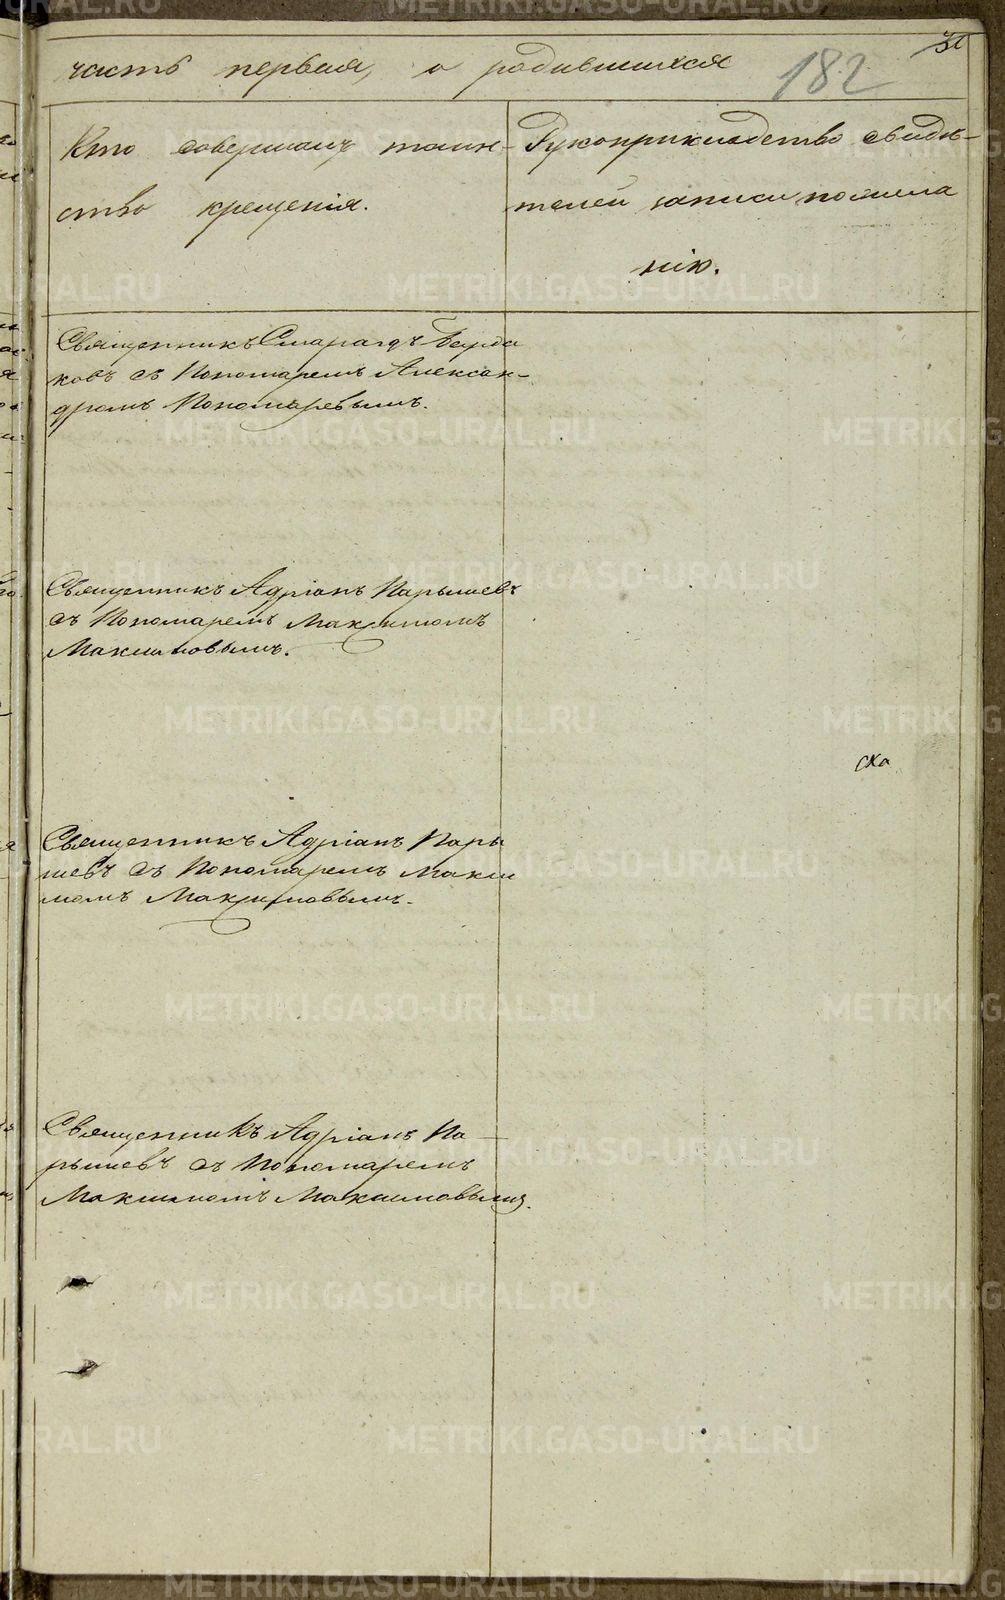 31
182
часть первая, о родившихся
Кто совершалъ таин-
ство крещенія.
Рукоприкладство свидѣ-
телей записи по жела
нію.
Священникъ Смарагдъ Бурда
ковъ съ Пономаремъ Алексан-
дромъ Пономаревымъ.
Священникъ Адріанъ Парышевъ
съ Пономаремъ Максимомъ
Максимовымъ.
ска
Священникъ Адріанъ Пары
шевъ съ Пономаремъ Макси
момъ Максимовымъ.
Священникъ Адріанъ Па-
рышевъ съ Пономаремъ
Максимомъ Максимовымъ.
METRIKI.GASO-URAL.RU